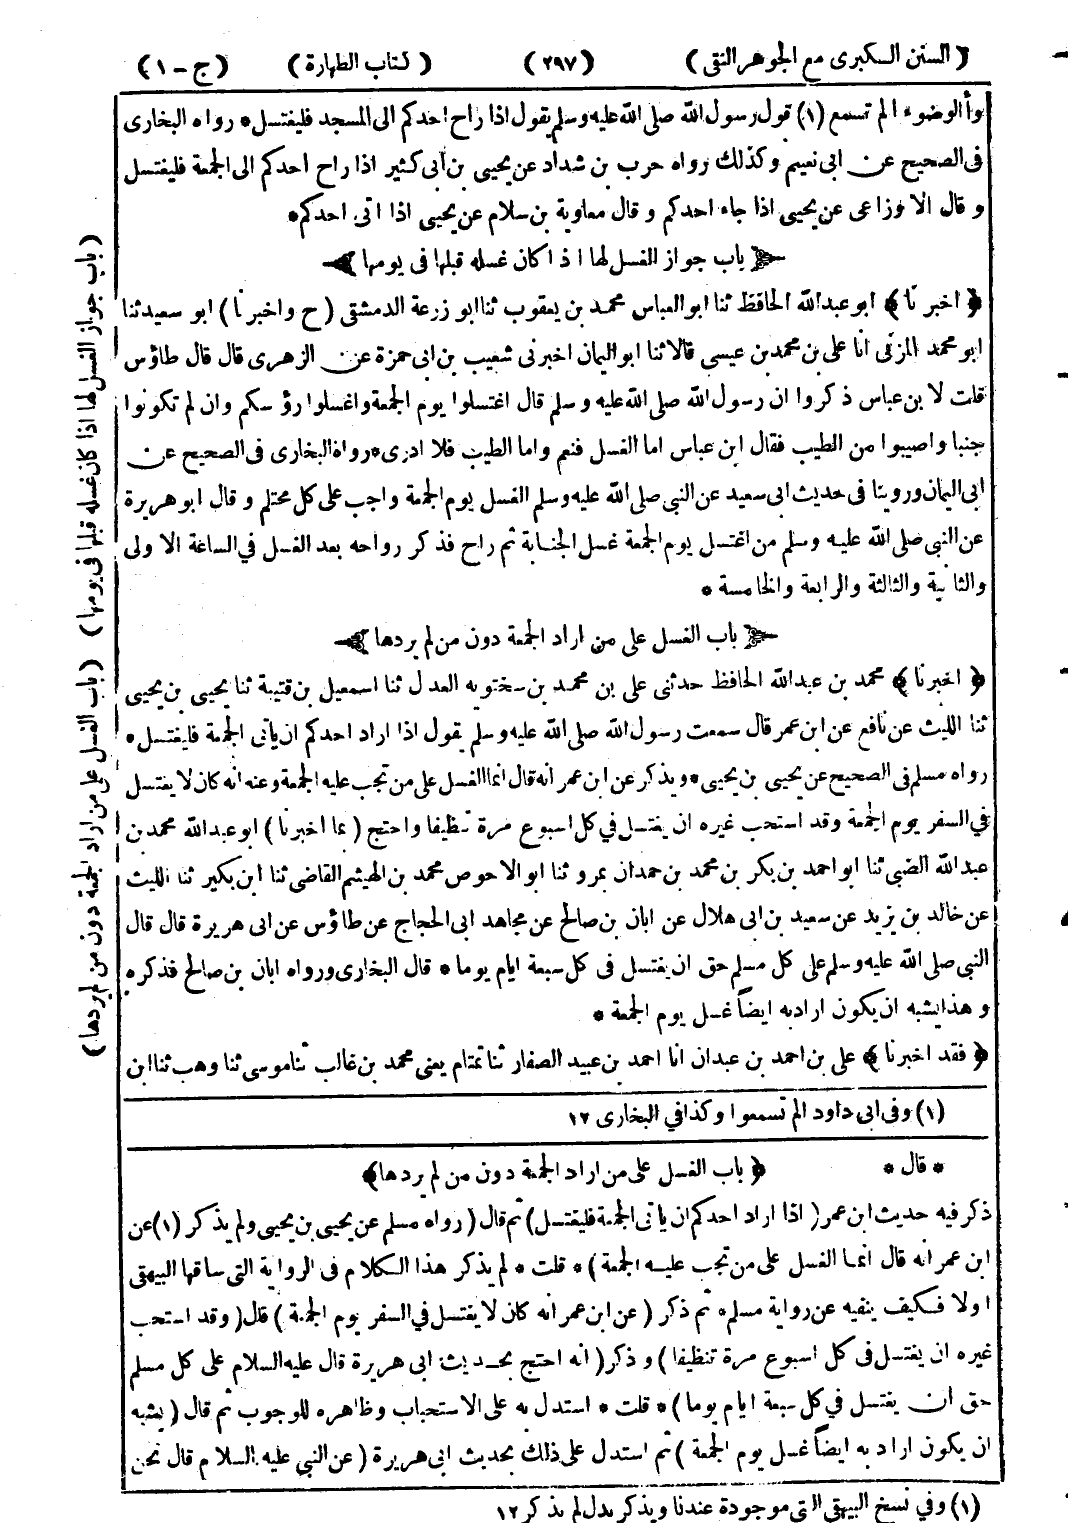 ﴿ السنن الكبرى مع الجوهر النقى ﴾ ( ٢٩٧ ) ( كتاب الطهارة ) ( ج - ١ )
وأ الوضوء الم تسمع (١) قول رسول الله صلى الله عليه وسلم يقول اذا راح احدكم الى المسجد فليغتسل * رواه البخارى
فى الصحيح عن ابى نعيم وكذلك رواه حرب بن شداد عن يحيى بن أبى كثير اذا راح احدكم الى الجمعة فليغتسل
و قال الاوزاعى عن يحيى اذا جاء احدكم و قال معاوية بن سلام عن يحيى اذا اتى احدكم *
﴿ باب جواز الغسل لها اذا كان غسله قبلها فى يومها ﴾
﴿ اخبرنا ﴾ ابو عبدالله الحافظ ثنا ابو العباس محمد بن يعقوب ثنا ابو زرعة الدمشقى ( ح واخبرنا ) ابو سعيد ثنا
ابو محمد المزنى انا على بن محمد بن عيسى قالا ثنا ابو اليمان اخبرنى شعيب بن ابى حمزة عن الزهرى قال قال طاؤس
قلت لابن عباس ذكروا ان رسول الله صلى الله عليه وسلم قال اغتسلوا يوم الجمعة واغسلوا رؤسكم وان لم تكونوا
جنبا واصيبوا من الطيب فقال ابن عباس اما الغسل فنعم واما الطيب فلا ادرى * رواه البخارى فى الصحيح عن
ابى اليمان وروينا فى حديث ابى سعيد عن النبى صلى الله عليه وسلم الغسل يوم الجمعة واجب على كل محتلم و قال ابو هريرة
عن النبى صلى الله عليه وسلم من اغتسل يوم الجمعة غسل الجنابة ثم راح فذكر رواحه بعد الغسل في الساعة الاولى
والثانية والثالثة والرابعة والخامسة *
﴿ باب الغسل على من اراد الجمعة دون من لم يردها ﴾
﴿ اخبرنا ﴾ محمد بن عبدالله الحافظ حدثنى على بن محمد بن سختويه العدل ثنا اسمعيل بن قتيبة ثنا يحيى بن يحيى
ثنا الليث عن نافع عن ابن عمر قال سمعت رسول الله صلى الله عليه وسلم يقول اذا اراد احدكم ان يأتى الجمعة فليغتسل *
رواه مسلم فى الصحيح عن يحيى بن يحيى * ويذكر عن ابن عمر انه قال انما الغسل على من تجب عليه الجمعة وعنه انه كان لا يغتسل
في السفر يوم الجمعة وقد استحب غيره ان يغتسل في كل اسبوع مرة تنظيفا واحتج ( بما اخبرنا ) ابو عبدالله محمد بن
عبدالله الضبى ثنا ابو احمد بن بكر بن محمد بن حمدان بمرو ثنا ابو الاحوص محمد بن الهيثم القاضى ثنا ابن بكير ثنا الليث
عن خالد بن يزيد عن سعيد بن ابى هلال عن ابان بن صالح عن مجاهد ابى الحجاج عن طاؤس عن ابى هريرة قال قال
النبى صلى الله عليه وسلم على كل مسلم حق ان يغتسل فى كل سبعة ايام يوما * قال البخارى ورواه ابان بن صالح فذكره
و هذا يشبه ان يكون اراد به ايضاً غسل يوم الجمعة *
﴿ فقد اخبرنا ﴾ على بن احمد بن عبدان انا احمد بن عبيد الصفار ثنا تمتام يعنى محمد بن غالب ثنا موسى ثنا وهب ثنا ابن
(١) وفى ابى داود الم تسمعوا وكذا في البخارى ١٢
* قال * ﴿ باب الغسل على من اراد الجمعة دون من لم يردها ﴾
ذكر فيه حديث ابن عمر ( اذا اراد احدكم ان يأتى الجمعة فليغتسل ) ثم قال ( رواه مسلم عن يحيى بن يحيى ولم يذكر (١) عن
ابن عمر انه قال انما الغسل على من تجب عليه الجمعة ) * قلت * لم يذكر هذا الكلام فى الرواية التى ساقها البيهقى
اولا فكيف ينفيه عن رواية مسلم * ثم ذكر ( عن ابن عمر انه كان لا يغتسل في السفر يوم الجمعة ) قال ( وقد استحب
غيره ان يغتسل فى كل اسبوع مرة تنظيفا ) و ذكر ( انه احتج بحديث ابى هريرة قال عليه السلام على كل مسلم
حق ان يغتسل في كل سبعة ايام يوما ) * قلت * استدل به على الاستحباب وظاهره للوجوب ثم قال ( يشبه
ان يكون اراد به ايضاً غسل يوم الجمعة ) ثم استدل على ذلك بحديث ابى هريرة ( عن النبي عليه السلام قال نحن
(١) وفي نسخ البيهقى التى موجودة عندنا ويذكر بدل لم يذكر ١٢
( باب جواز الغسل لها اذا كان غسله قبلها فى يومها )
( باب الغسل على من اراد الجمعة دون من لم يردها )